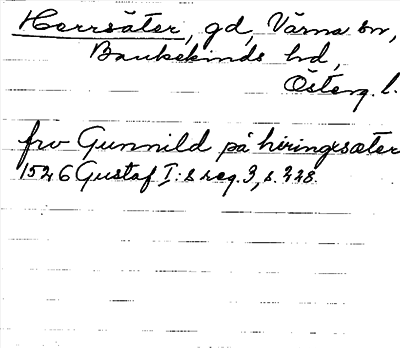 Herrsäter, gd, Värna sn,
Bankekinds hd,
Österg. l.
fru Gunnild på hiringsæter
1526 Gustaf I:s reg. 3, s. 228.